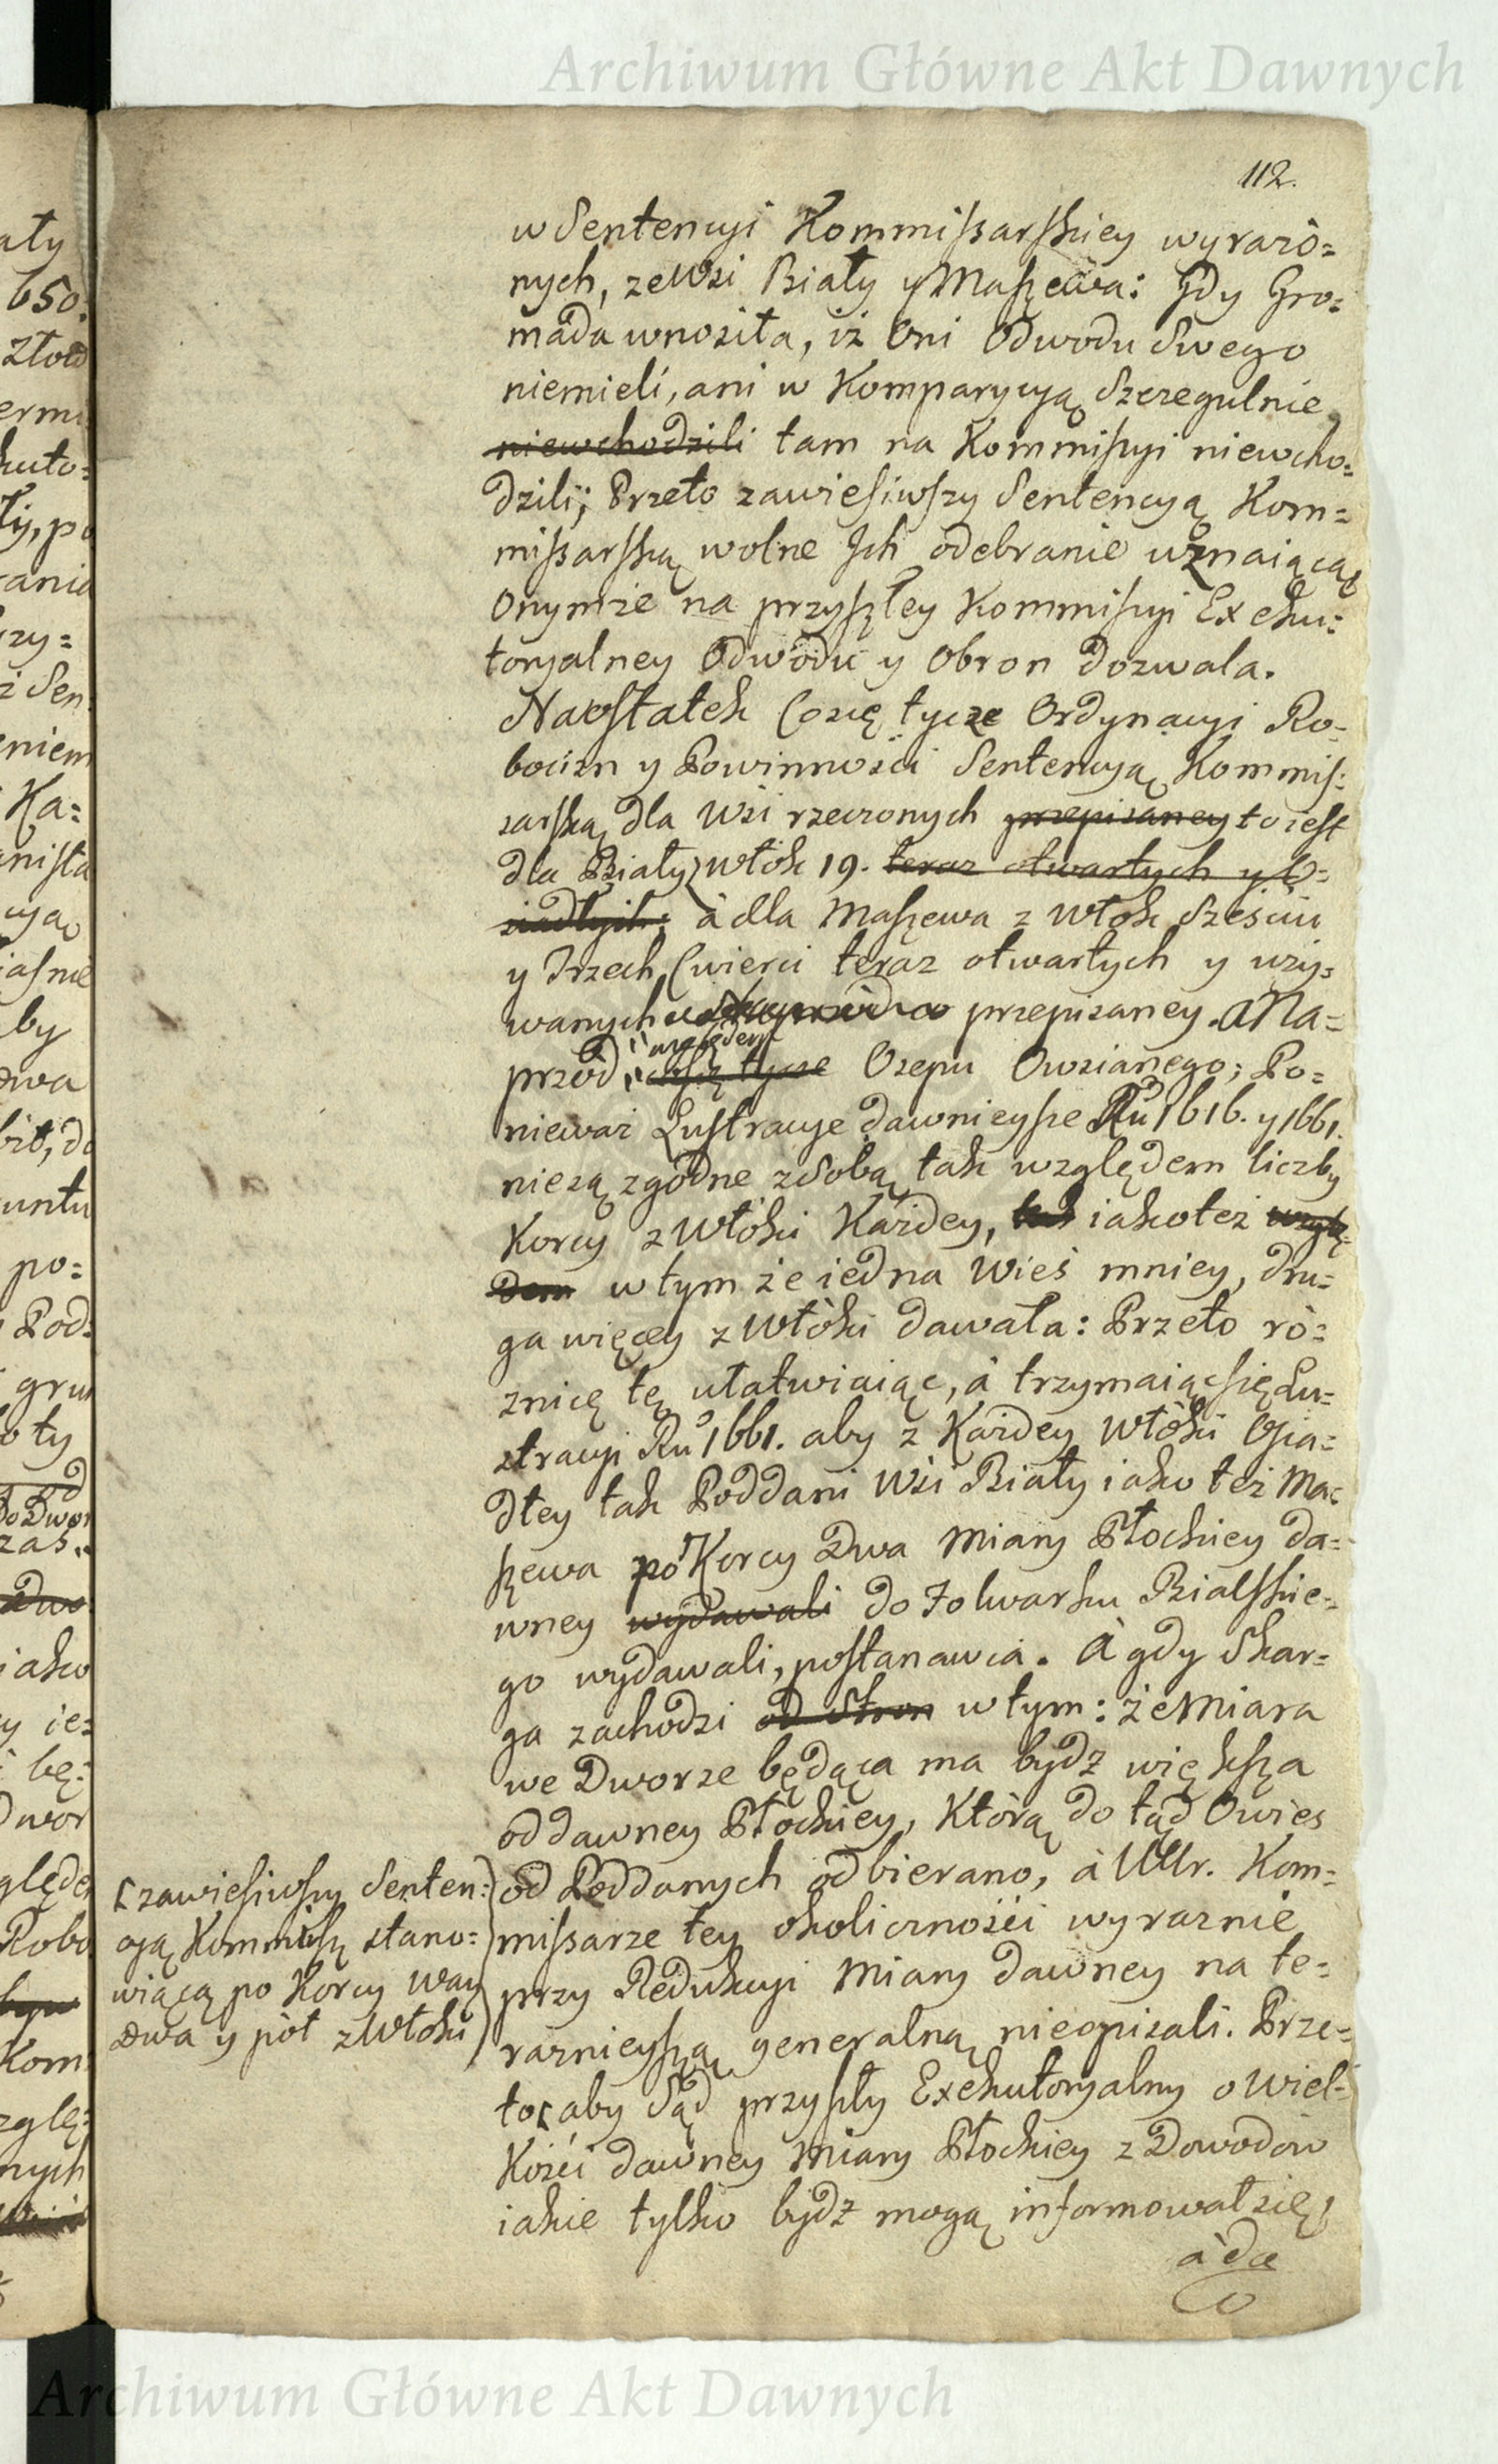 Archiwum Główne Akt Dawnych
112.
w Sentencyi Kommissarskiey wyrażo=
nych, ze Wsi Biały y Maszewa: Gdy Gro=
mada wnosiła, iż Oni Odwodu Swego
niemieli, ani w Komparycyą Szczegulnie
niewchodzili tam na Kommissyi niewcho=
dzili; Przeto zawiesiwszy Sentencyą Kom=
missarską wolne Jch odebranie uznaiącą
Onymże na przyszłey Kommissyi Exeku=
toryalney Odwodu y Obron dozwala.
Naostatek Cosię tycze Ordynacyi Ro=
bocizn y Powinności Sentencyą Kommis=
sarską dla Wsi rzeczonych przepisaney to iest
dla Biały z włók 19. teraz otwartych y O=
siadłych: à dla Maszewa z Włok Sześciu
y Trzech Cwierci teraz otwartych y uży=
wanych przepisaney. a Na=
względem
przód cosię tycze Osepu Owsianego; Po=
nieważ Lustracye dawnieysze Ru 1616. y 1661.
niesą zgodne z Sobą tak względem liczby
Korcy z Włóki Każdey, tak iakoteż wzglę=
dem w tym że iedna Wieś mniey, dru=
ga więcey z Włóki dawała: Przeto ró=
żnicę tę ułatwiaiąc, à trzymaiąc się Lu=
stracyi Ru 1661. aby z Każdey Włóki Osia=
dłey tak Poddani Wsi Biały iako też Ma=
szewa po Korcy Dwa Miary Płockiey da=
wney wydawali do Folwarku Bialskie=
go wydawali, postanawia. A gdy Skar=
ga zachodzi od Stron w tym: że Miara
we Dworze będąca ma bydź większa
od dawney Płockiey, Którą do tąd Owies
od Poddanych odbierano, à WUr. Kom=
missarze tey okoliczności wyraznie
przy Redukcyi Miary dawney na te=
raznieyszą generalną nieopisali. Prze=
to aby Sąd przyszły Exekutoryalny o Wiel=
Kości dawney Miary Płockiey z Dowodow
iakie tylko bydź mogą informował się,
à do
[zawiesiwszy Senten=
cyą Kommissy stano=
wiącą po Korcy War
Dwa y pół z Włoki)
Archiwum Główne Akt Dawnych